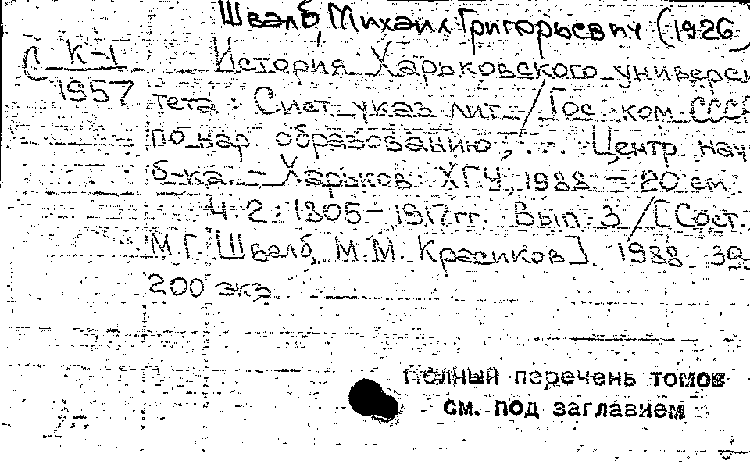 Швалб, Михаил Григорьевич (1926
С К-1 История Харьковского универси
1957 тета : Сист. указ. лит. / Гос. ком. СССР
по нар. образованию, ... Центр. науч.
б-ка. - Харьков : ХГУ, 1988 - 20 см.
Ч. 2 : 1805 - 1917 гг. Вып. 3 / [Сост.
М.Г. Швалб, М.М. Красиков]. 1988. 39
200 экз.
Полный перечень томов
см. под заглавием